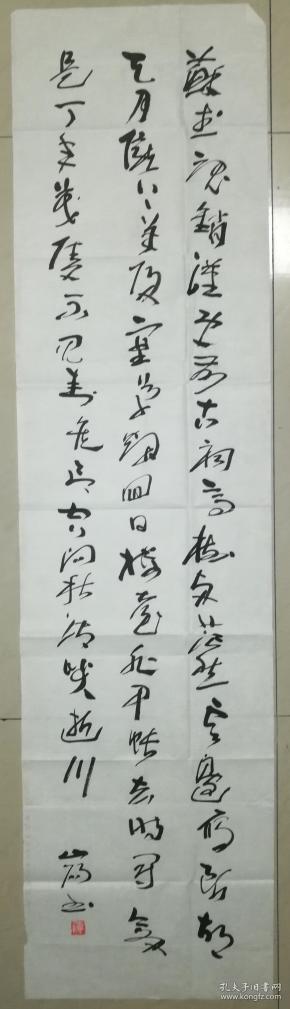 蘇武魂銷漢使前古祠高樹兩茫然雲邊雁斷胡
天月隴上羊歸塞草煙回日樓臺非甲帳去時冠劍
是丁年茂陵不見封侯印空向秋波哭逝川
书
孔夫子旧书网